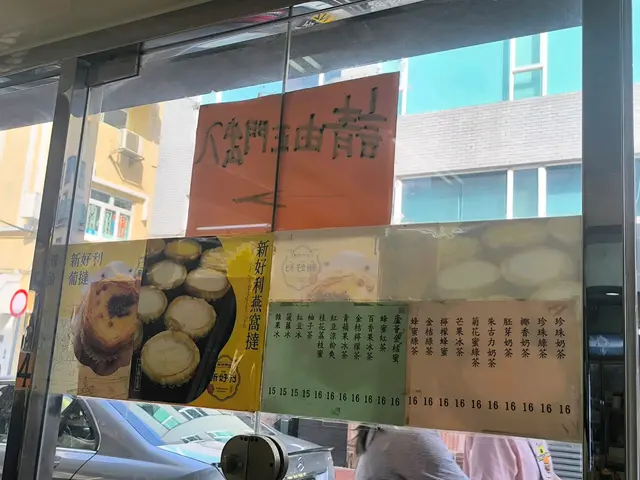 請由正門出入
新好利
葡撻
新好利燕窩撻
新好利
珍珠奶茶 16
珍珠綠茶 16
椰香奶茶 16
胚芽奶茶 16
朱古力奶茶 16
菊花蜜綠茶 16
芒果冰茶 16
檸檬蜂蜜 16
金桔綠茶 16
蜂蜜綠茶 16
蘆薈金桔蜜 16
蜂蜜紅茶 16
百香果冰茶 16
金桔檸檬茶 16
青蘋果冰茶 16
紅豆涼粉爽 16
桂花荔枝蜜 16
柚子茶 15
紅豆冰 15
菠蘿冰 15
雜果冰 15